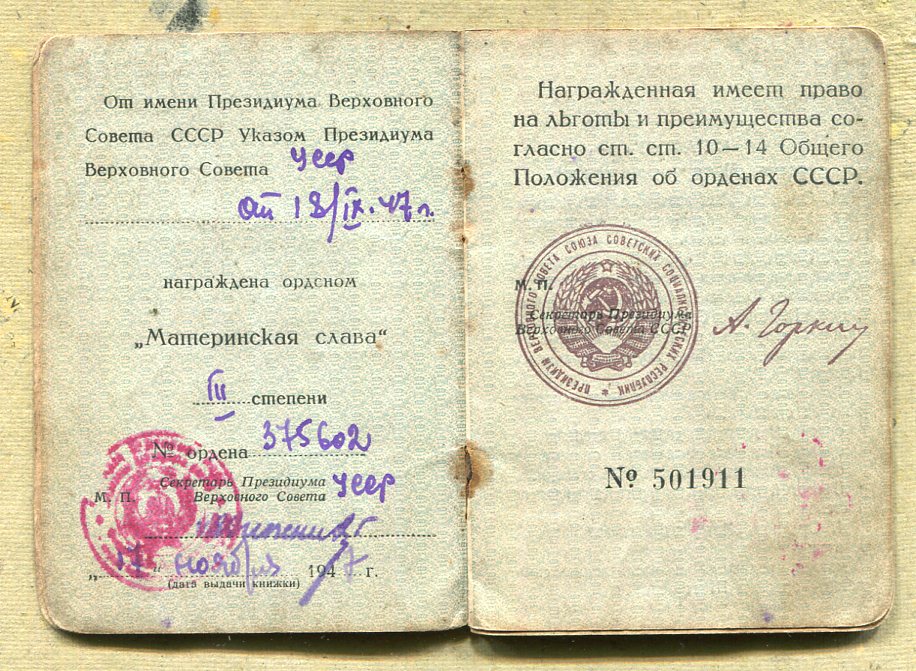 От имени Президиума Верховного
Совета СССР Указом Президиума
Верховного Совета УССР
от 18/IX.47 г.
награждена орденом
„Материнская слава“
III степени
№ ордена 375602
Секретарь Президиума
М. П. Верховного Совета УССР
„17 “ ноября 1947 г.
(дата выдачи книжки)
Награжденная имеет право
на льготы и преимущества со-
гласно ст. ст. 10—14 Общего
Положения об орденах СССР.
ПРЕЗИДИУМ ВЕРХОВНОГО СОВЕТА СОЮЗА СОВЕТСКИХ СОЦИАЛИСТИЧЕСКИХ РЕСПУБЛИК
М. П.
Секретарь Президиума
Верховного Совета СССР А. Горкин
№ 501911